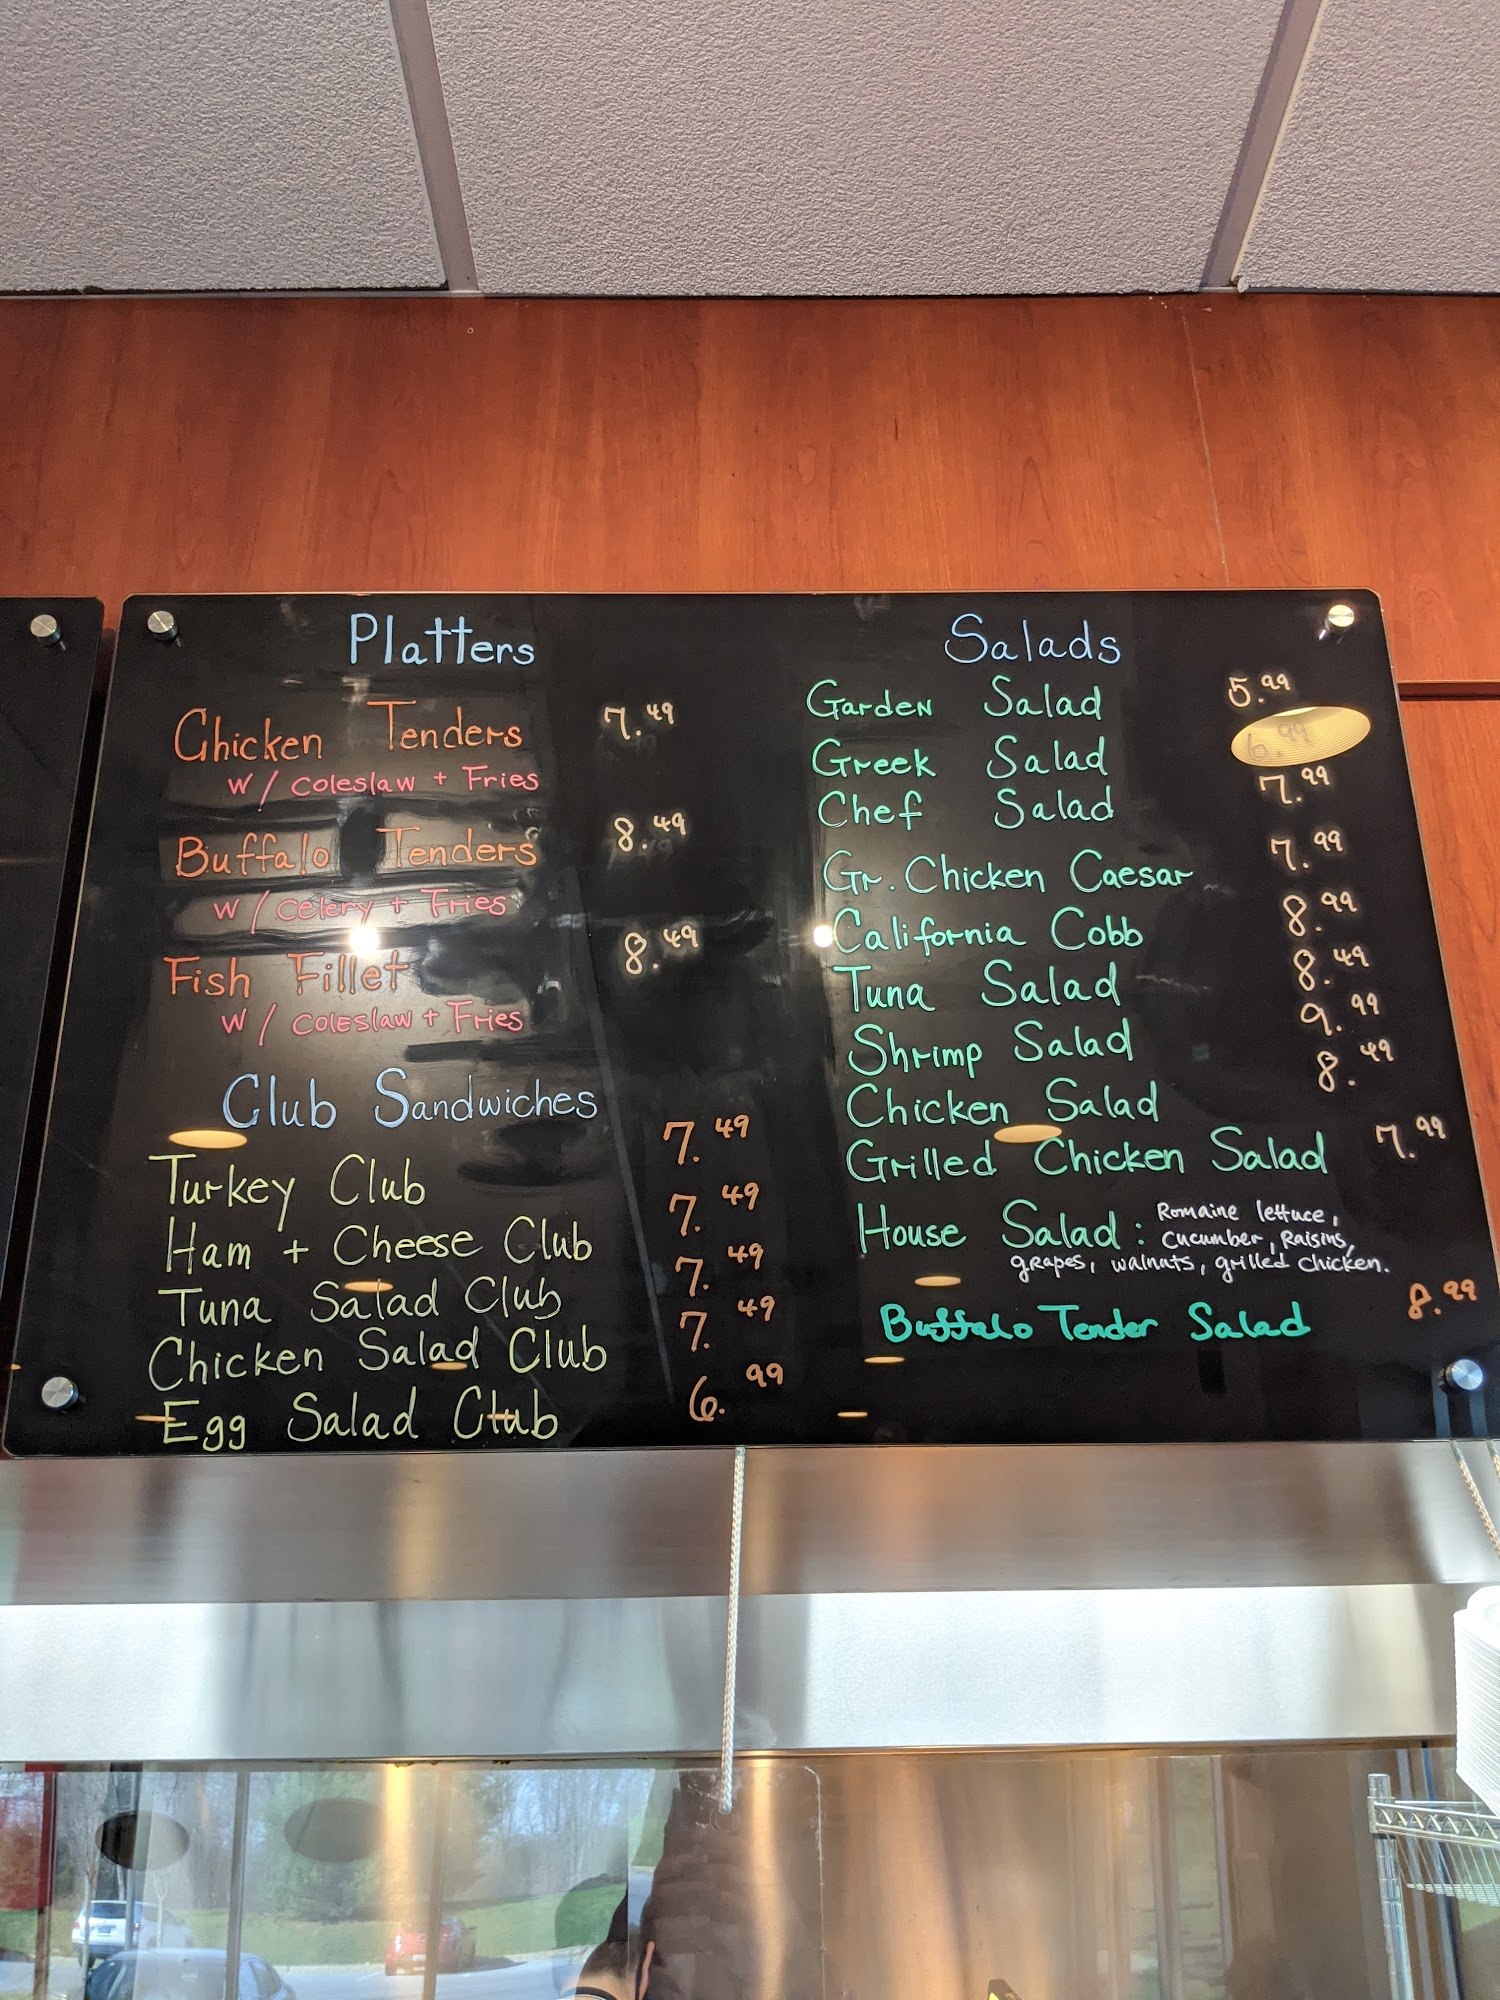 Platters
Chicken Tenders 7.49
w/ coleslaw + Fries
Buffalo Tenders 8.49
w/ celery + Fries
Fish Fillet 8.49
w/ coleslaw + Fries
Club Sandwiches
Turkey Club 7.49
Ham + Cheese Club 7.49
Tuna Salad Club 7.49
Chicken Salad Club 7.49
Egg Salad Club 6.99
Salads
Garden Salad 5.99
Greek Salad 6.99
Chef Salad 7.99
Gr. Chicken Caesar 7.99
California Cobb 8.99
Tuna Salad 8.49
Shrimp Salad 9.99
Chicken Salad 8.49
Grilled Chicken Salad 7.99
House Salad: Romaine lettuce,
cucumber, Raisins,
grapes, walnuts, grilled chicken.
Buffalo Tender Salad 8.99